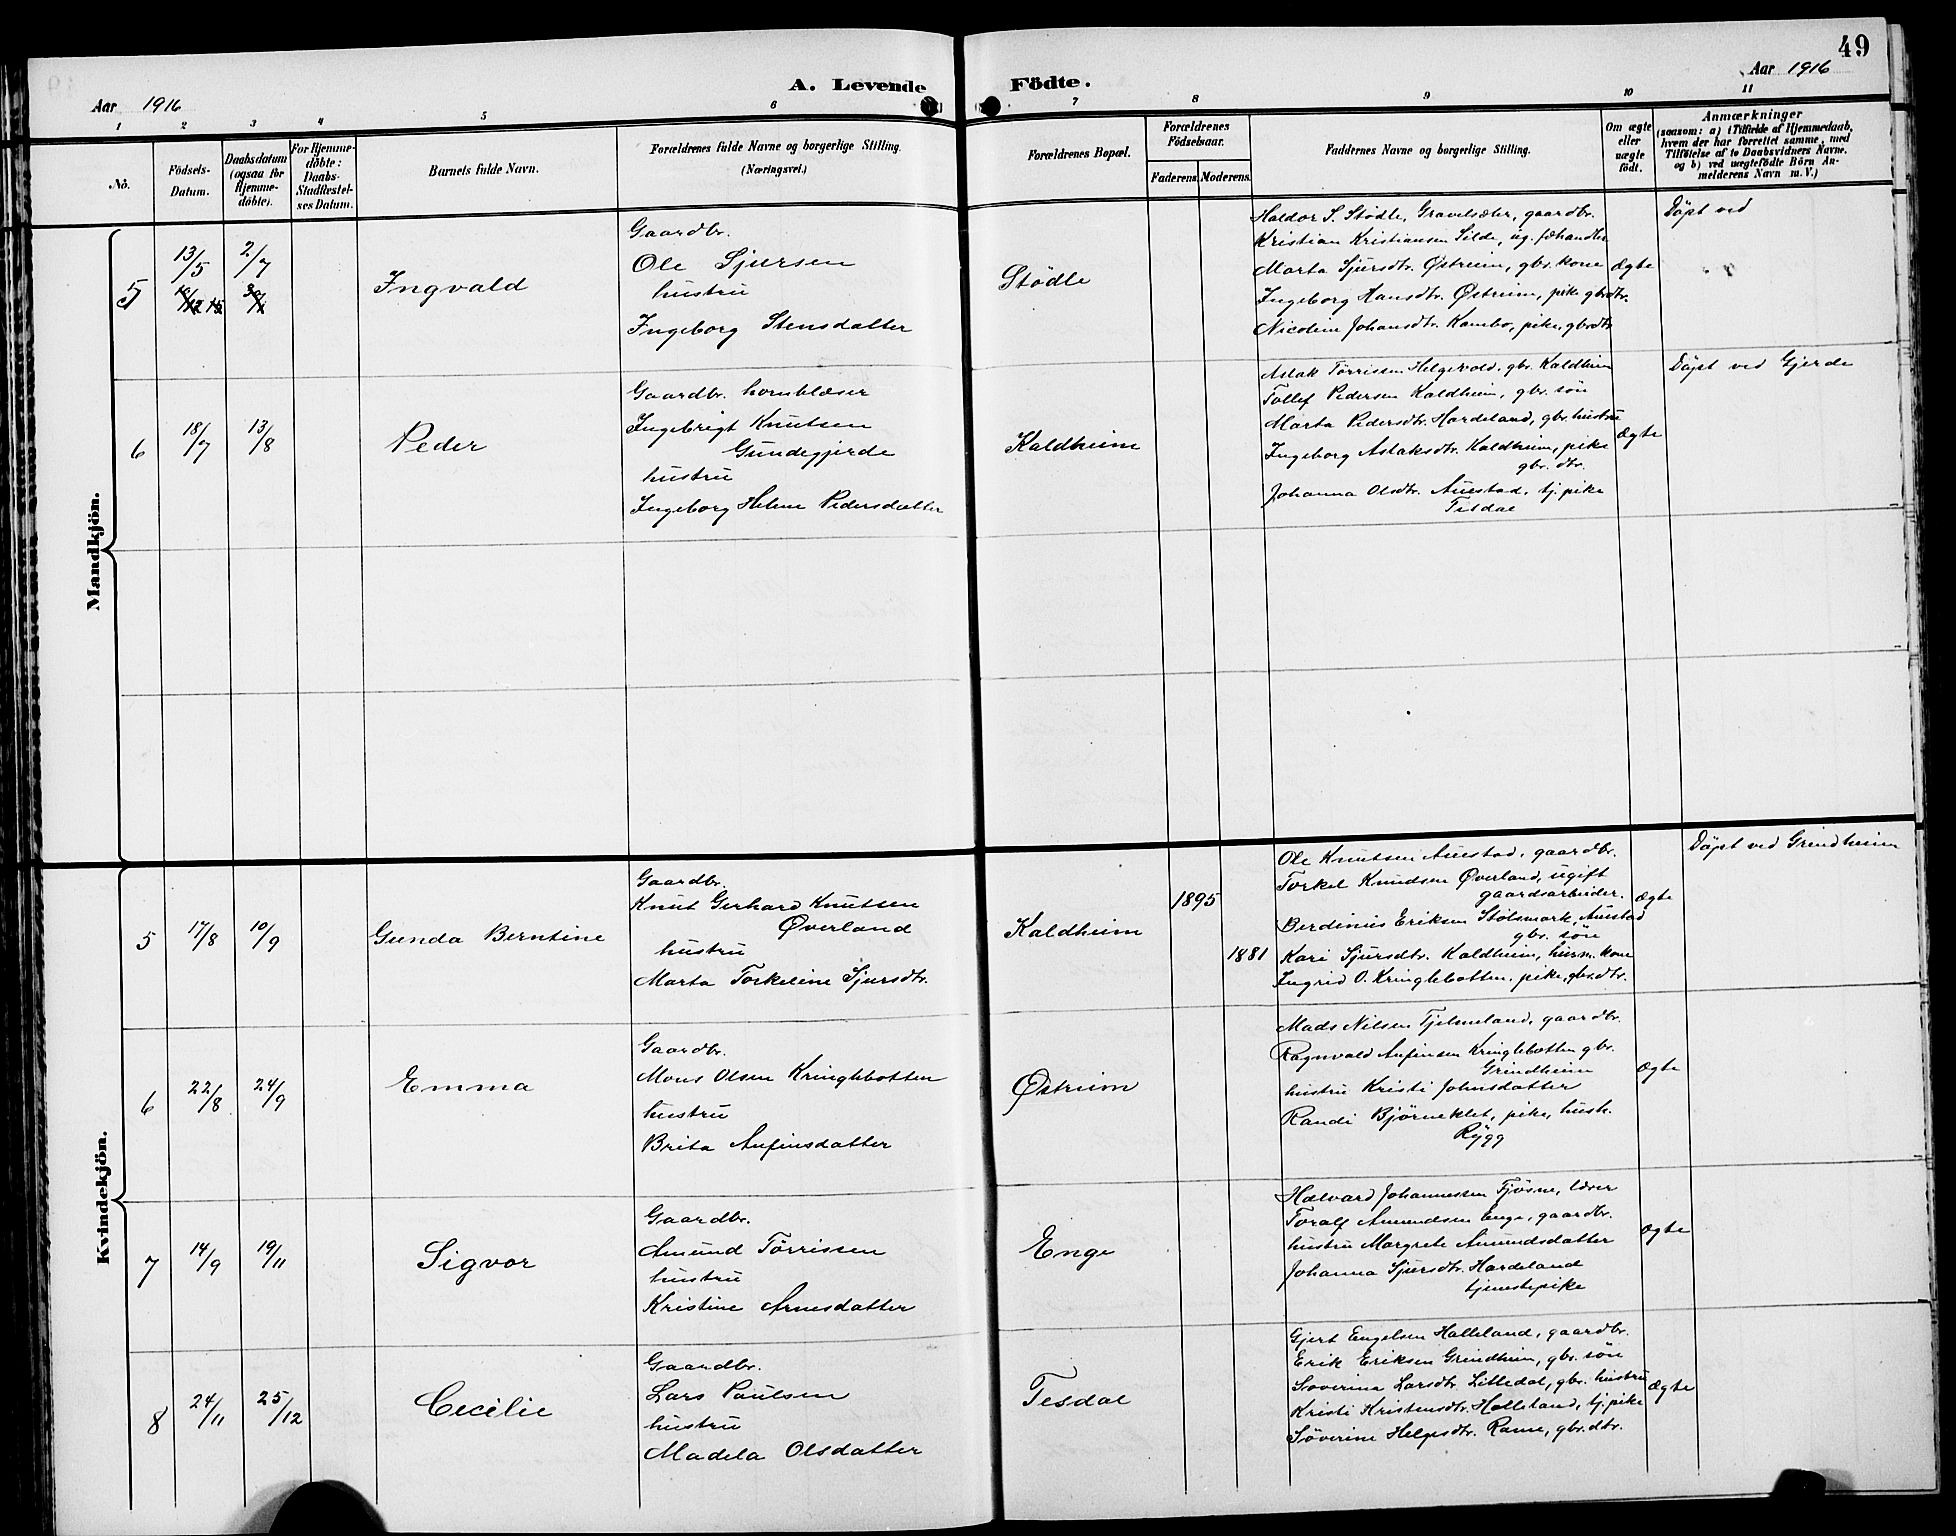 49
A. Levende Födte.
Aar 1916
Aar 1916
1 2 3 4 5 6 7 8 9 10 11
No.
Födsels-Datum.
Daabsdatum (ogsaa for Hjemme-döbte).
For Hjemme-döbte: Daabs-Stadfæstel-ses Datum.
Barnets fulde Navn.
Forældrenes fulde Navne og borgerlige Stilling.
(Næringsvei.)
Forældrenes Bopæl.
Forældrenes Födselsaar.
Faderens. Moderens.
Faddernes Navne og borgerlige Stilling.
Om ægte eller uægte födt.
Anmærkninger
(saasom: a) i Tilfælde af Hjemmedaab,
hvem der har forrettet samme, med
Tilföielse af to Daabsvidners Navne.
og b) ved uægtefödte Börn An-
melderens Navn m. V.)
Mandkjön.
5
13/5
2/7
Ingvald
Gaardbr.
Ole Sjursen
hustru
Ingeborg Stensdatter
Stödle
Haldor S. Stødle, Gravelsæter, gaardbr.
Kristian Kristiansen Silde, ug. fæhandler
Marta Sjursdtr. Østreim, gbr. kone
Ingeborg Hansdtr. Østreim, pike gbrdtr.
Nicoline Johansdtr. Kambo, pike, gbrdtr.
Ægte
Döpt ved
6
18/7
13/8
Peder
Gaardbr. hornblæser
Ingebrigt Knutsen
Gundegjerde
hustru
Ingeborg Helene Pedersdatter
Kaldheim
Aslak Tørrissen Helgevold, gbr. Kaldheim
Tollef Pedersen Kaldheim, gbr. søn
Marta Pedersdtr. Hardeland, gbr. hustru
Ingeborg Aslaksdtr. Kaldheim, pike
gbr. dtr.
Johanna Olsdtr. Auestad, tj. pike
Tesdal
Ægte
Döpt ved Gjerde
Kvindekjön.
5
17/8
10/9
Gunda Berntine
Gaardbr.
Knut Gerhard Knutsen
Øverland
hustru
Marta Torkeline Sjursdtr.
Kaldheim
1895
1881
Ole Knutsen Auestad, gaardbr.
Torkel Knudsen Øverland, ugift
gaardsarbeider.
Berdinius Eriksen Stølsmark, Auestad
gbr. søn
Kari Sjursdtr. Kaldheim, husm. kone
Ingrid O. Kringlebotten, pike, gbr. dtr.
Ægte
Döpt ved Grindheim
6
22/8
24/9
Emma
Gaardbr.
Mons Olsen Kringlebotten
hustru
Brita Anfinsdatter
Østreim
Mads Nilsen Tjelmeland, gaardbr.
Ragnvald Anfinsen Kringlebotten gbr.
Grindheim
hustru Kristi Johnsdatter
Randi Bjørneklet, pike, hush.
Rygg
Ægte
7
14/9
19/11
Sigvor
Gaardbr.
Amund Tørrissen
hustru
Kristine Arnesdatter
Enge
Halvard Johannessen Tjøsne, lærer
Toralf Amundsen Enge, gaardbr.
hustru Margrete Amundsdatter
Johanna Sjursdtr. Hardeland
tjenestepike
Ægte
8
24/11
25/12
Cecilie
Gaardbr.
Lars Paulsen
hustru
Madela Olsdatter
Tesdal
Gjert Engelsen Halleland, gaardbr.
Erik Eriksen Grindheim, gbr. søn
Soverina Larsdtr. Litledal, gbr. hustru
Kristi Kristensdtr. Halleland, tj. pike
Søverine Helgesdtr. Rame, gbr. dtr.
Ægte